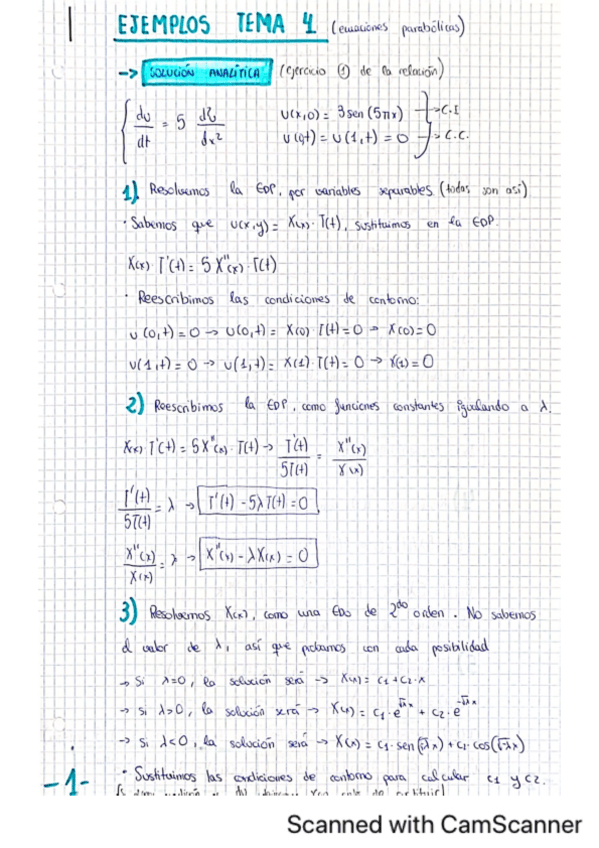 EJEMPLOS TEMA 4 (ecuaciones parabólicas)
-> SOLUCIÓN ANALÍTICA (Ejercicio ① de la relación)
{ du/dt = 5 d²u/dx² u(x,0) = 3 sen(5πx) } -> C.I
u(0,t) = u(1,t) = 0 } -> C.C.
1) Resolvemos la EDP, por variables separables (todas son así)
· Sabemos que u(x,y) = X(x)·T(t), sustituimos en la EDP.
X(x) T'(t) = 5 X''(x)·T(t)
· Reescribimos las condiciones de contorno:
u(0,t) = 0 → u(0,t) = X(0)·T(t) = 0 → X(0) = 0
u(1,t) = 0 → u(1,t) = X(1)·T(t) = 0 → X(1) = 0
2) Reescribimos la EDP, como funciones constantes igualando a λ.
X(x) T'(t) = 5X''(x)·T(t) → T'(t)/5T(t) = X''(x)/X(x)
T'(t)/5T(t) = λ → T'(t) - 5λT(t) = 0
X''(x)/X(x) = λ → X''(x) - λX(x) = 0
3) Resolvemos X(x), como una EDO de 2do orden. No sabemos
el valor de λ, así que probamos con cada posibilidad
→ Si λ=0, la solución será → X(x) = c1 + c2·x
→ si λ>0, la solución será → X(x) = c1·e^√λx + c2·e^-√λx
→ si λ<0, la solución será → X(x) = c1·sen(√-λx) + c2·cos(√-λx)
· Sustituimos las condiciones de contorno para calcular c1 y c2.
-1-
Scanned with CamScanner